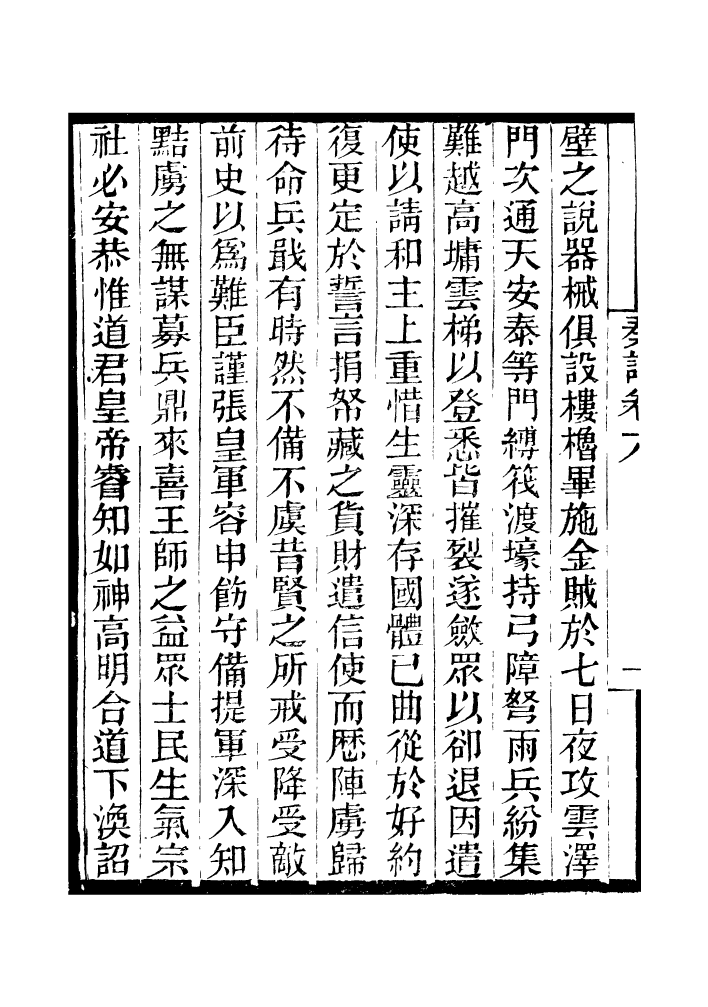 壁之說器械俱設樓櫓畢施金賊於七日夜攻雲澤
門次通天安泰等門縛筏渡壕持弓障弩雨兵紛集
難越高墉雲梯以登悉皆摧裂遂斂眾以卻退因遣
使以請和主上重惜生靈深存國體已曲從於好約
復更定於誓言捐帑藏之貨財遣信使而歷陣虜歸
待命兵戢有時然不備不虞昔賢之所戒受降受敵
前史以爲難臣謹張皇軍容申飭守備提軍深入知
黠虜之無謀募兵鼎來喜王師之益眾士民生氣宗
社必安恭惟道君皇帝睿知如神高明合道下渙詔